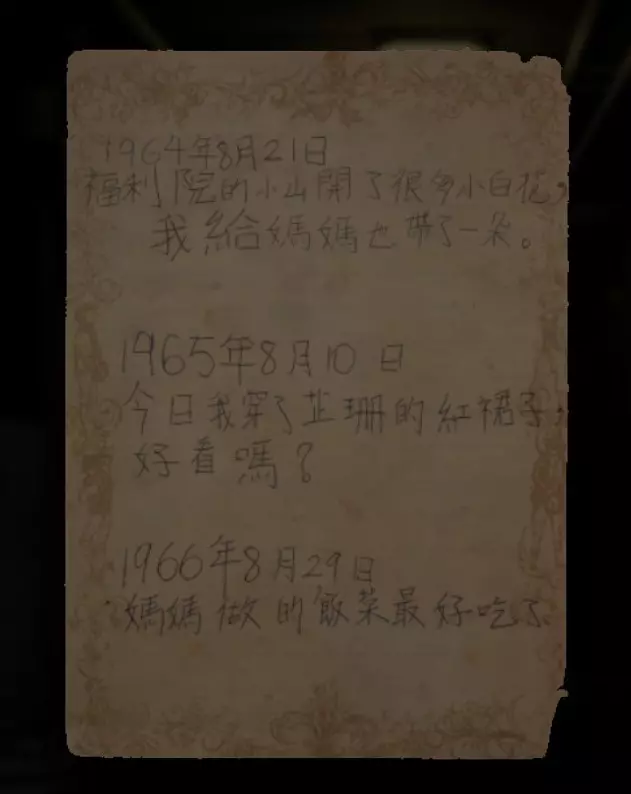 1964年8月21日
福利院的小山開了很多小白花，
我給媽媽也帶了一朵。
1965年8月10日
今日我穿了芷珊的紅裙子，
好看嗎？
1966年8月29日
媽媽做的飯菜最好吃了